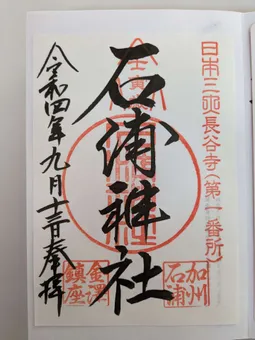 日本三大長谷寺(第一番所)
石浦神社
令和四年九月十三日奉拝
加州
石浦
金澤
鎮座